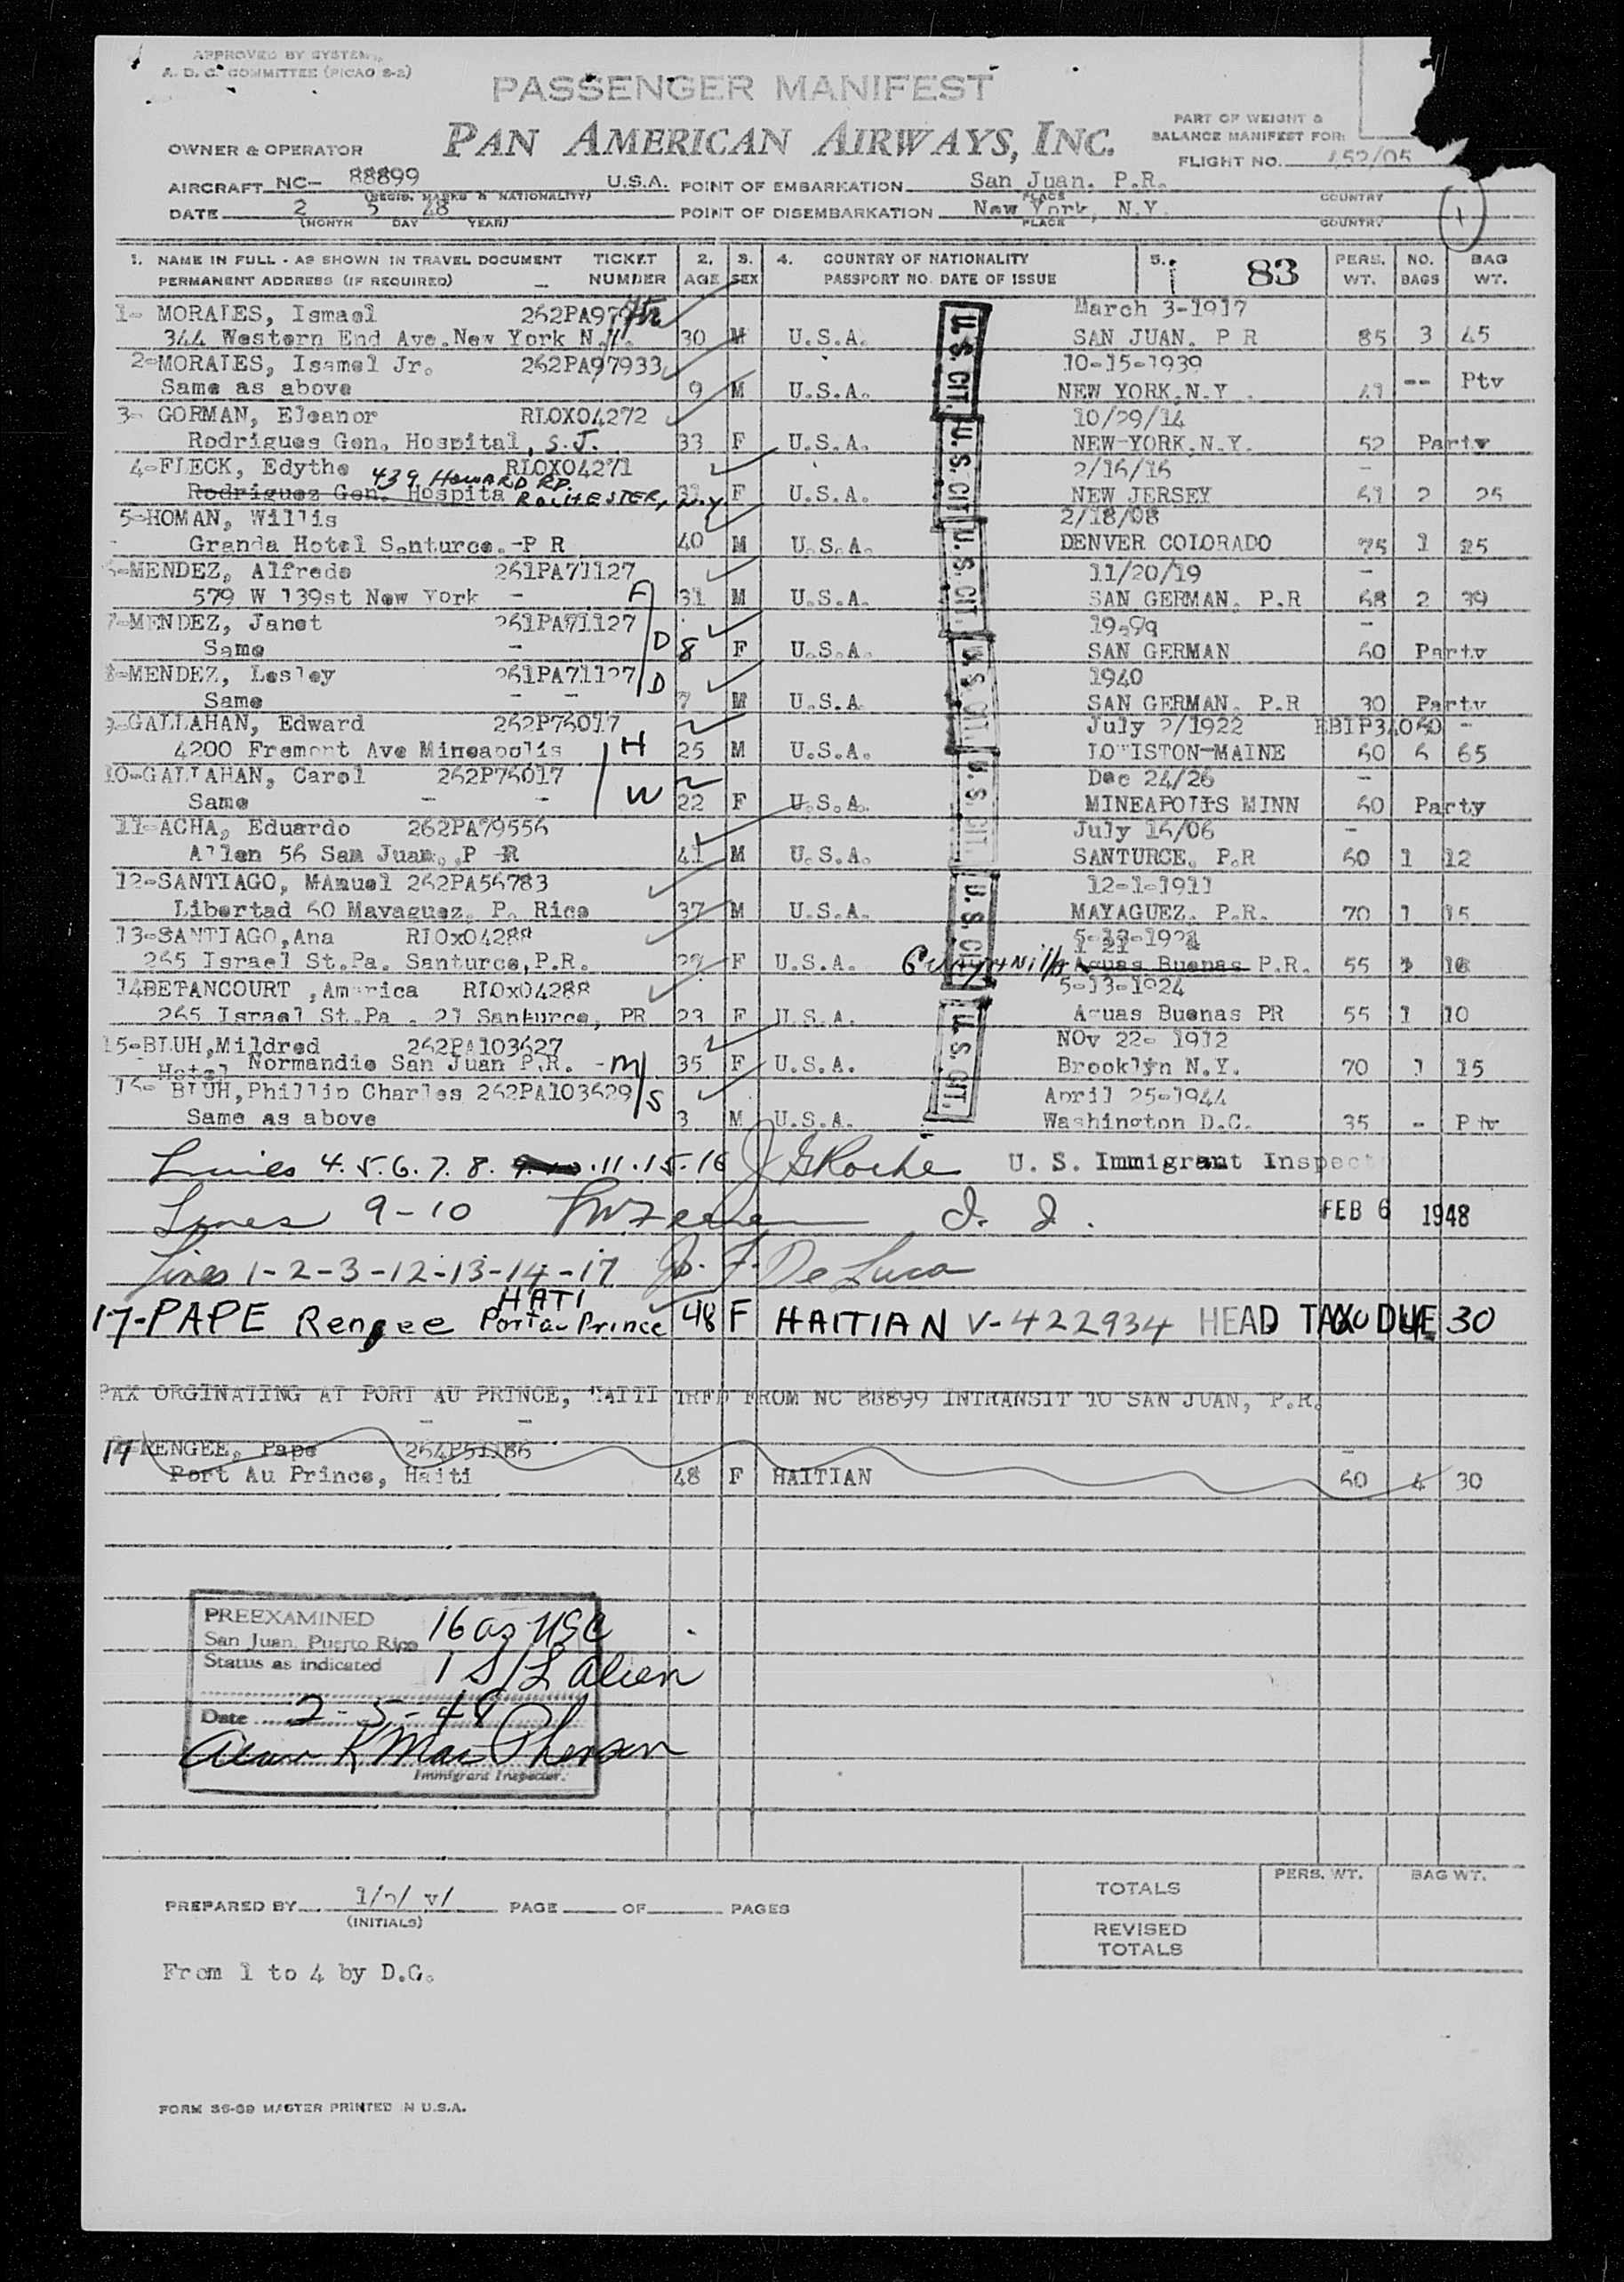 APPROVED BY SYSTEM
A. D. C. COMMITTEE (PICAO 2-2)
PASSENGER MANIFEST
PAN AMERICAN AIRWAYS, INC.
PART OF WEIGHT &
BALANCE MANIFEST FOR:
FLIGHT NO. 452/05
OWNER & OPERATOR
AIRCRAFT NC- 88899 U.S.A. POINT OF EMBARKATION San Juan. P.R.
(REGIS. MARKS & NATIONALITY) PLACE COUNTRY
DATE 2 5 48 POINT OF DISEMBARKATION New York, N.Y.
(MONTH DAY YEAR) PLACE COUNTRY
1
1. NAME IN FULL - AS SHOWN IN TRAVEL DOCUMENT TICKET 2. 3. 4. COUNTRY OF NATIONALITY 5. 83 PERS. NO. BAG
PERMANENT ADDRESS (IF REQUIRED) NUMBER AGE SEX PASSPORT NO. DATE OF ISSUE WT. BAGS WT.
1- MORALES, Ismael 262PA979 March 3-1917
344 Western End Ave.New York N.Y. 30 M U.S.A. SAN JUAN. P R 85 3 45
2-MORALES, Isamel Jr. 262PA97933 10-15-1939
Same as above 9 M U.S.A. NEW YORK,N.Y -- Ptv
3- GORMAN, Eleanor RLOX04272 10/29/14
Rodrigues Gen. Hospital, S.J. 33 F U.S.A. NEW-YORK,N.Y. 52 Party
4-FLECK, Edythe 439 HOWARD RD. RLOX04271 2/16/16
Rodriguez Gen. Hospita ROCHESTER, N.Y 31 F U.S.A. NEW JERSEY 61 2 25
5-HOMAN, Willis 2/18/08
Granda Hotel Santurce.-P R 40 M U.S.A. DENVER COLORADO 75 1 25
6-MENDEZ, Alfredo 261PA71127 11/20/19
579 W 139st New York - F 31 M U.S.A. SAN GERMAN. P.R 68 2 39
7-MENDEZ, Janet 261PA71127
Same - D 8 F U.S.A. SAN GERMAN 60 Party
8-MENDEZ, Lesley 261PA71127 1940
Same D 7 M U.S.A SAN GERMAN. P.R 30 Party
9-GALLAHAN, Edward 262P76017 July 2/1922 EBIP34060 -
4200 Fremont Ave Mineapolis H 25 M U.S.A. LOWISTON-MAINE 60 6 65
10-GALLAHAN, Carol 262P76017 Dec 24/26
Same W 22 F U.S.A. MINEAPOLIS MINN 60 Party
11-ACHA, Eduardo 262PA79556 July 16/06
Allen 56 Sam Juan, P R 41 M U.S.A. SANTURCE, P.R 60 1 12
12-SANTIAGO, MAnuel 262PA56783 12-1-1911
Libertad 60 Mayaguez, P. Rico 37 M U.S.A. MAYAGUEZ. P.R. 70 1 15
13-SANTIAGO,Ana RIOx04288
265 Israel St.Pa. Santurce,P.R. F U.S.A. Aguas Buenas P.R. 55 1 16
14BETANCOURT ,America RIOx04288 5-13-1924
265 Israel St.Pa . 21 Santurce, PR 23 F U.S.A. Aguas Buenas PR 55 1 10
15-BLUH,Mildred 262PA103627 NOv 22- 1912
Hotel Normandie San Juan P.R. -M 35 F U.S.A. Brooklyn N.Y. 70 1 15
16- BLUH,Phillip Charles 262PA103629 S April 25-1944
Same as above 3 M U.S.A. Washington D.C. 35 - Ptv
U. S. CIT.
U. S. CIT
U. S. CIT.
U. S. CIT.
U. S. CIT
U. S. CIT
U. S. CIT.
Lines 4.5.6.7.8. .11.15.16 J G Roche U. S. Immigrant Inspect
Lines 9-10 I. I. FEB 6 1948
Lines 1-2-3-12-13-14-17 J. F. De Luca
17-PAPE Rengee HATI Port au Prince 48 F HAITIAN V-422934 HEAD TAX DUE 30
PAX ORGINATING AT PORT AU PRINCE, HAITI TRFD FROM NC 88899 INTRANSIT TO SAN JUAN, P.R.
17 RENGEE, Pape 264P51186
Port Au Prince, Haiti 48 F HAITIAN 60 4 30
PREEXAMINED 16 as USC
San Juan, Puerto Rico
Status as indicated 1 S/L alien
Date 2-5-48
K Mac Pherson
Immigrant Inspector.
PREPARED BY (INITIALS) PAGE OF PAGES
TOTALS PERS. WT. BAG WT.
REVISED
TOTALS
From 1 to 4 by D.G.
FORM 36-69 MASTER PRINTED IN U.S.A.